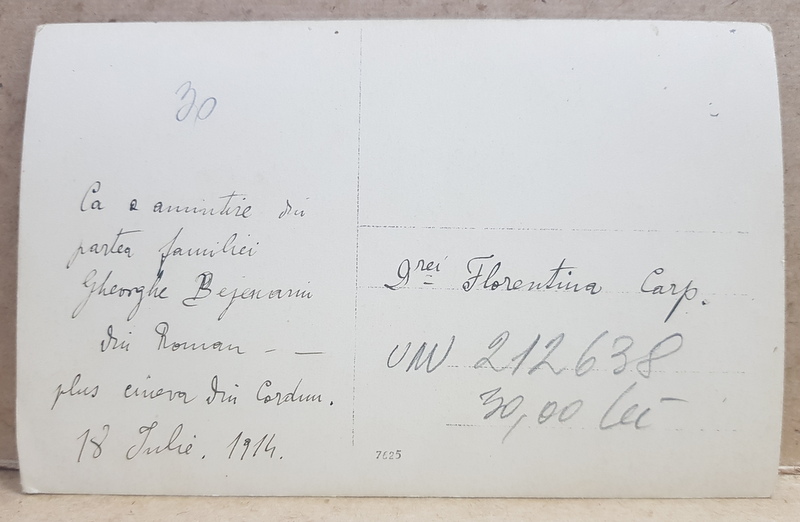 30
Ca o amintire din
partea familiei
Gheorghe Bejenariu
din Roman - —
plus cineva din Cordun.
18 Iulie. 1914.
Drei Florentina Carp.
UNV 212638
30,00 lei
7625